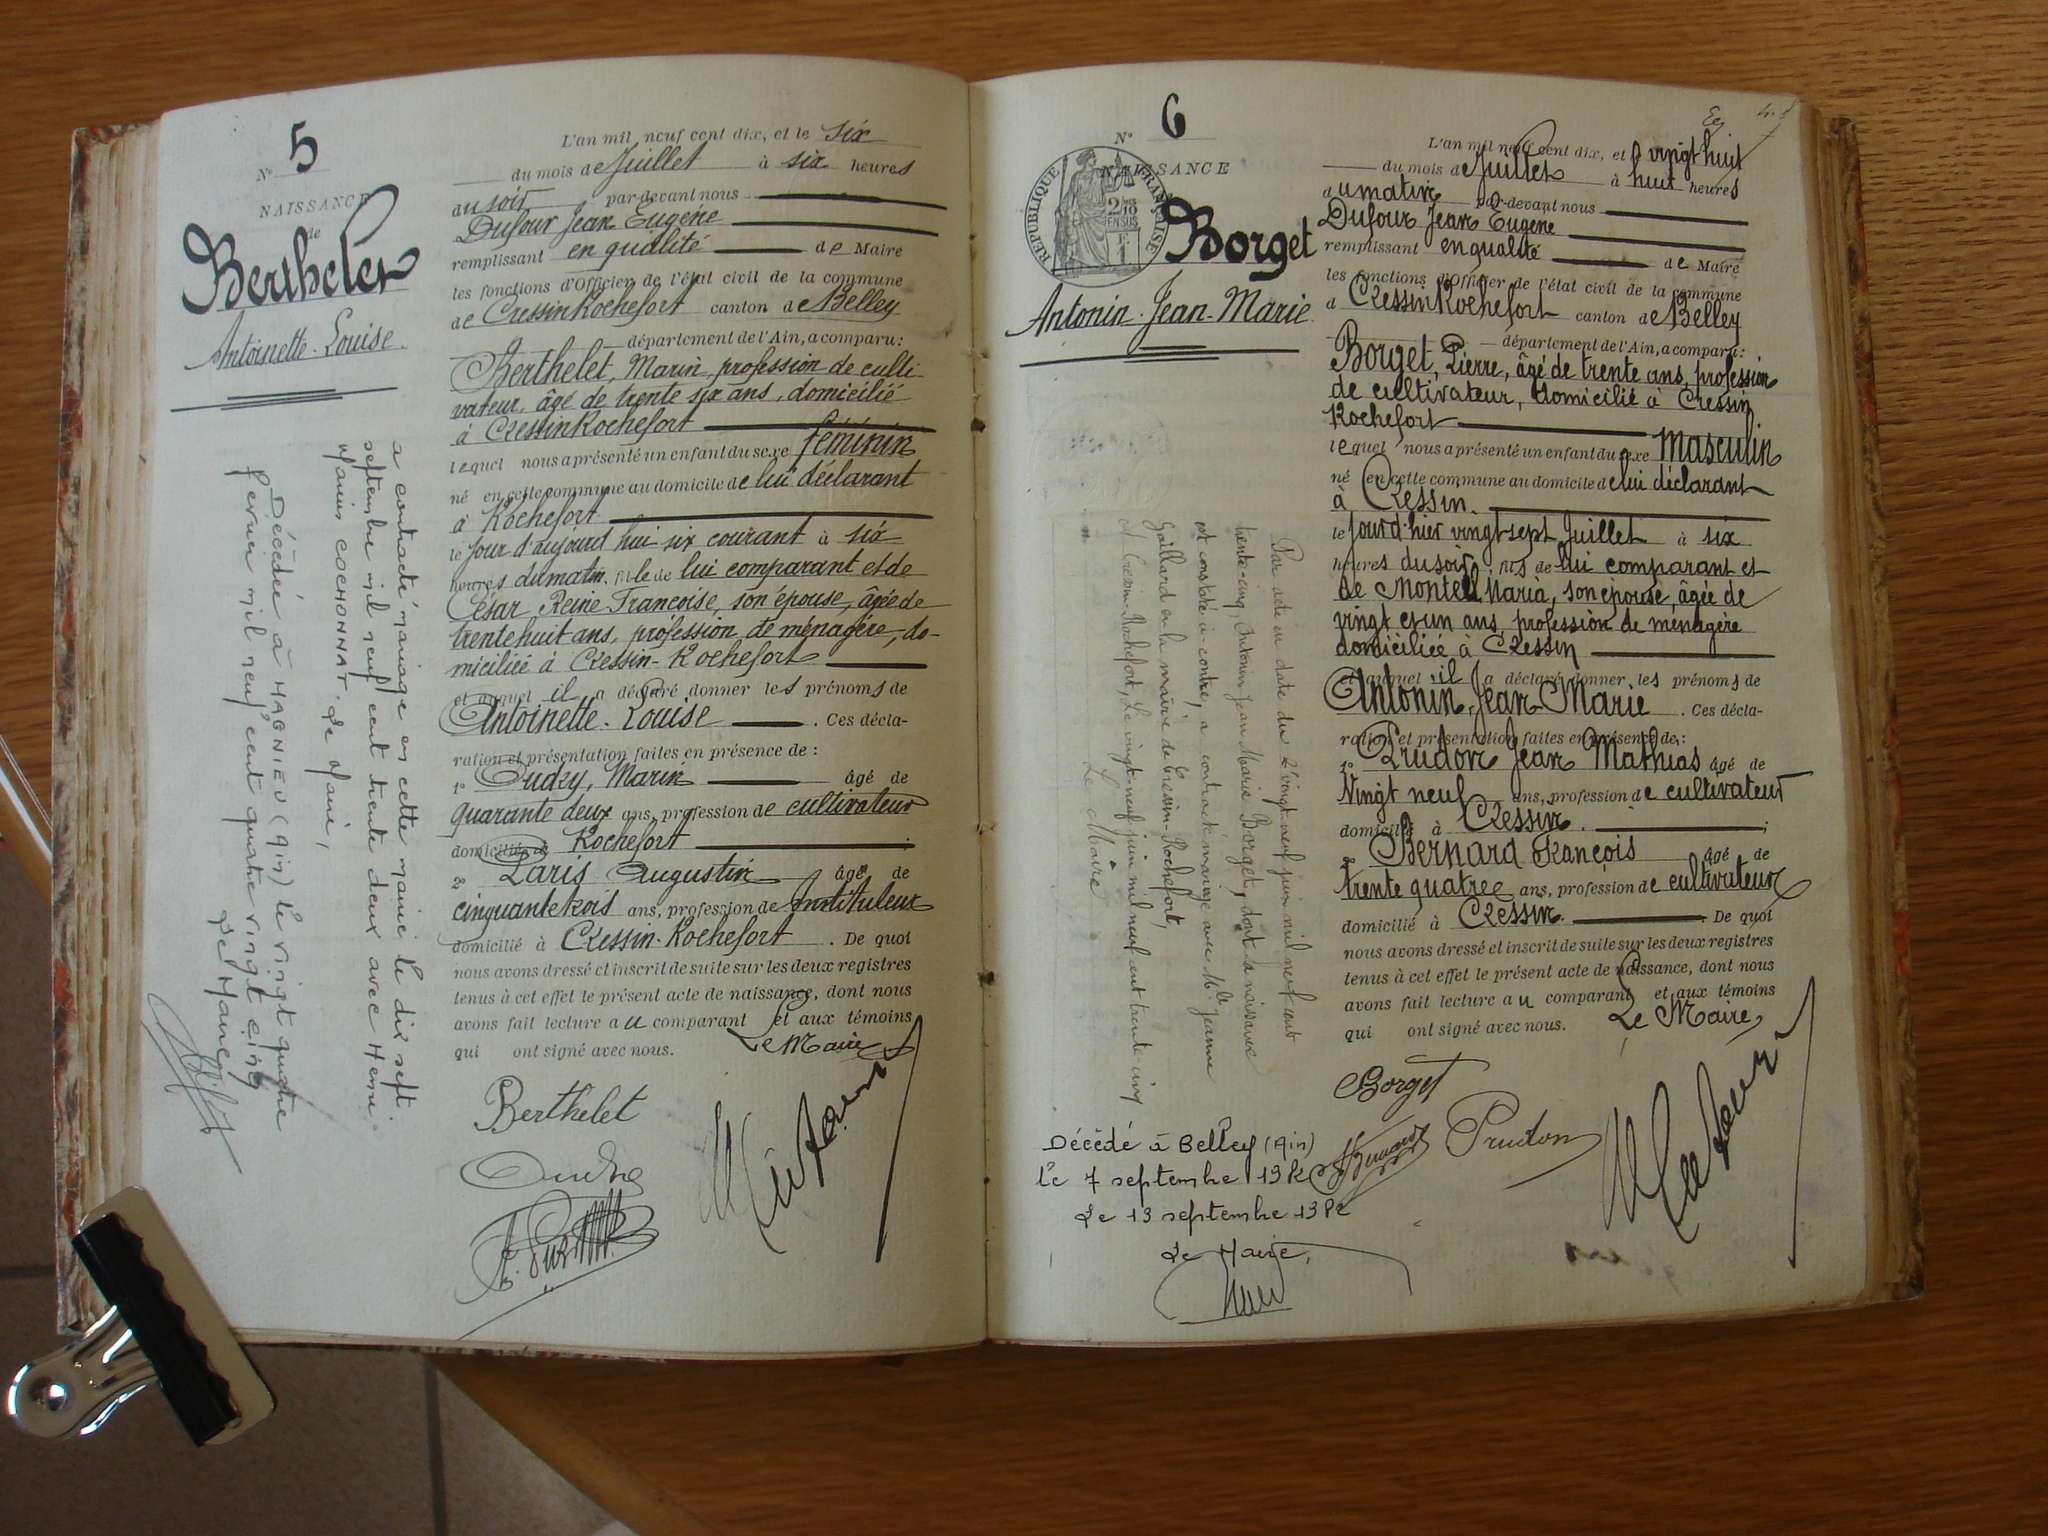 Nº 5
NAISSANCE
de
Berthelet
Antoinette-Louise.
a contracté mariage en cette mairie le dix sept
septembre mil neuf cent trente deux avec Henri
Marius COCHONNAT. Le Maire,
Décédée à MAGNIEU (Ain) le vingt quatre
février mil neuf cent quatre vingt cinq
Le Maire,
L'an mil neuf cent dix, et le six
du mois de Juillet à six heures
du soir par-devant nous
Dufour Jean Eugène
remplissant en qualité de Maire
les fonctions d'Officier de l'état civil de la commune
de Cressin Rochefort canton de Belley
département de l'Ain, a comparu:
Berthelet, Marin, profession de culti
vateur, âgé de trente six ans, domicilié
à Cressin Rochefort
lequel nous a présenté un enfant du sexe féminin
né en cette commune au domicile de lui déclarant
à Rochefort
le jour d'aujourd'hui six courant à six
heures du matin, fille de lui comparant et de
César Reine Françoise, son épouse, âgée de
trente huit ans, profession de ménagère, do-
miciliée à Cressin-Rochefort
et auquel il a déclaré donner les prénoms de
Antoinette-Louise . Ces décla-
ration et présentation faites en présence de :
1º Oudry, Marin âgé de
quarante deux ans, profession de cultivateur
domicilié à Rochefort ;
2º Paris Augustin âgé de
cinquante trois ans, profession de Instituteur
domicilié à Cressin-Rochefort . De quoi
nous avons dressé et inscrit de suite sur les deux registres
tenus à cet effet le présent acte de naissance, dont nous
avons fait lecture au comparant et aux témoins
qui ont signé avec nous. Le Maire
Berthelet
Oudry
Nº 6
NAISSANCE
RÉPUBLIQUE FRANÇAISE
2/10 EN SUS
1F
Borget
Antonin-Jean-Marie
Par acte en date du vingt-neuf juin mil neuf cent
trente-cinq, Antonin Jean Marie Borget, dont la naissance
est constatée ci-contre, a contracté mariage avec Mlle Jeanne
Gaillard en la mairie de Cressin-Rochefort,
A Cressin-Rochefort, Le vingt-neuf juin mil neuf cent trente cinq
Le Maire
Décédé à Belley (Ain)
le 7 septembre
Le 13 septembre
Le Maire,
L'an mil neuf cent dix, et le vingt huit
du mois de Juillet à huit heures
du matin par-devant nous
Dufour Jean Eugène
remplissant en qualité de Maire
les fonctions d'Officier de l'état civil de la commune
d Cressin Rochefort canton de Belley
département de l'Ain, a comparu:
Borget, Pierre, âgé de trente ans, profession
de cultivateur, domicilié à Cressin
Rochefort
lequel nous a présenté un enfant du sexe Masculin
né en cette commune au domicile de lui déclarant
à Cressin.
le jour d'hier vingt sept Juillet à six
heures du soir, fils de lui comparant et
de Maria, son épouse, âgée de
vingt et un ans, profession de ménagère
domiciliée à Cressin
et auquel il a déclaré donner les prénoms de
Antonin, Jean-Marie . Ces décla-
ration et présentation faites en présence de :
1º Prudon Jean Mathias âgé de
Vingt neuf ans, profession de cultivateur
domicilié à Cressin. ;
2º Bernard François âgé de
trente quatre ans, profession de cultivateur
domicilié à Cressin. De quoi
nous avons dressé et inscrit de suite sur les deux registres
tenus à cet effet le présent acte de naissance, dont nous
avons fait lecture au comparant et aux témoins
qui ont signé avec nous. Le Maire
Borget
Bernard
Prudon